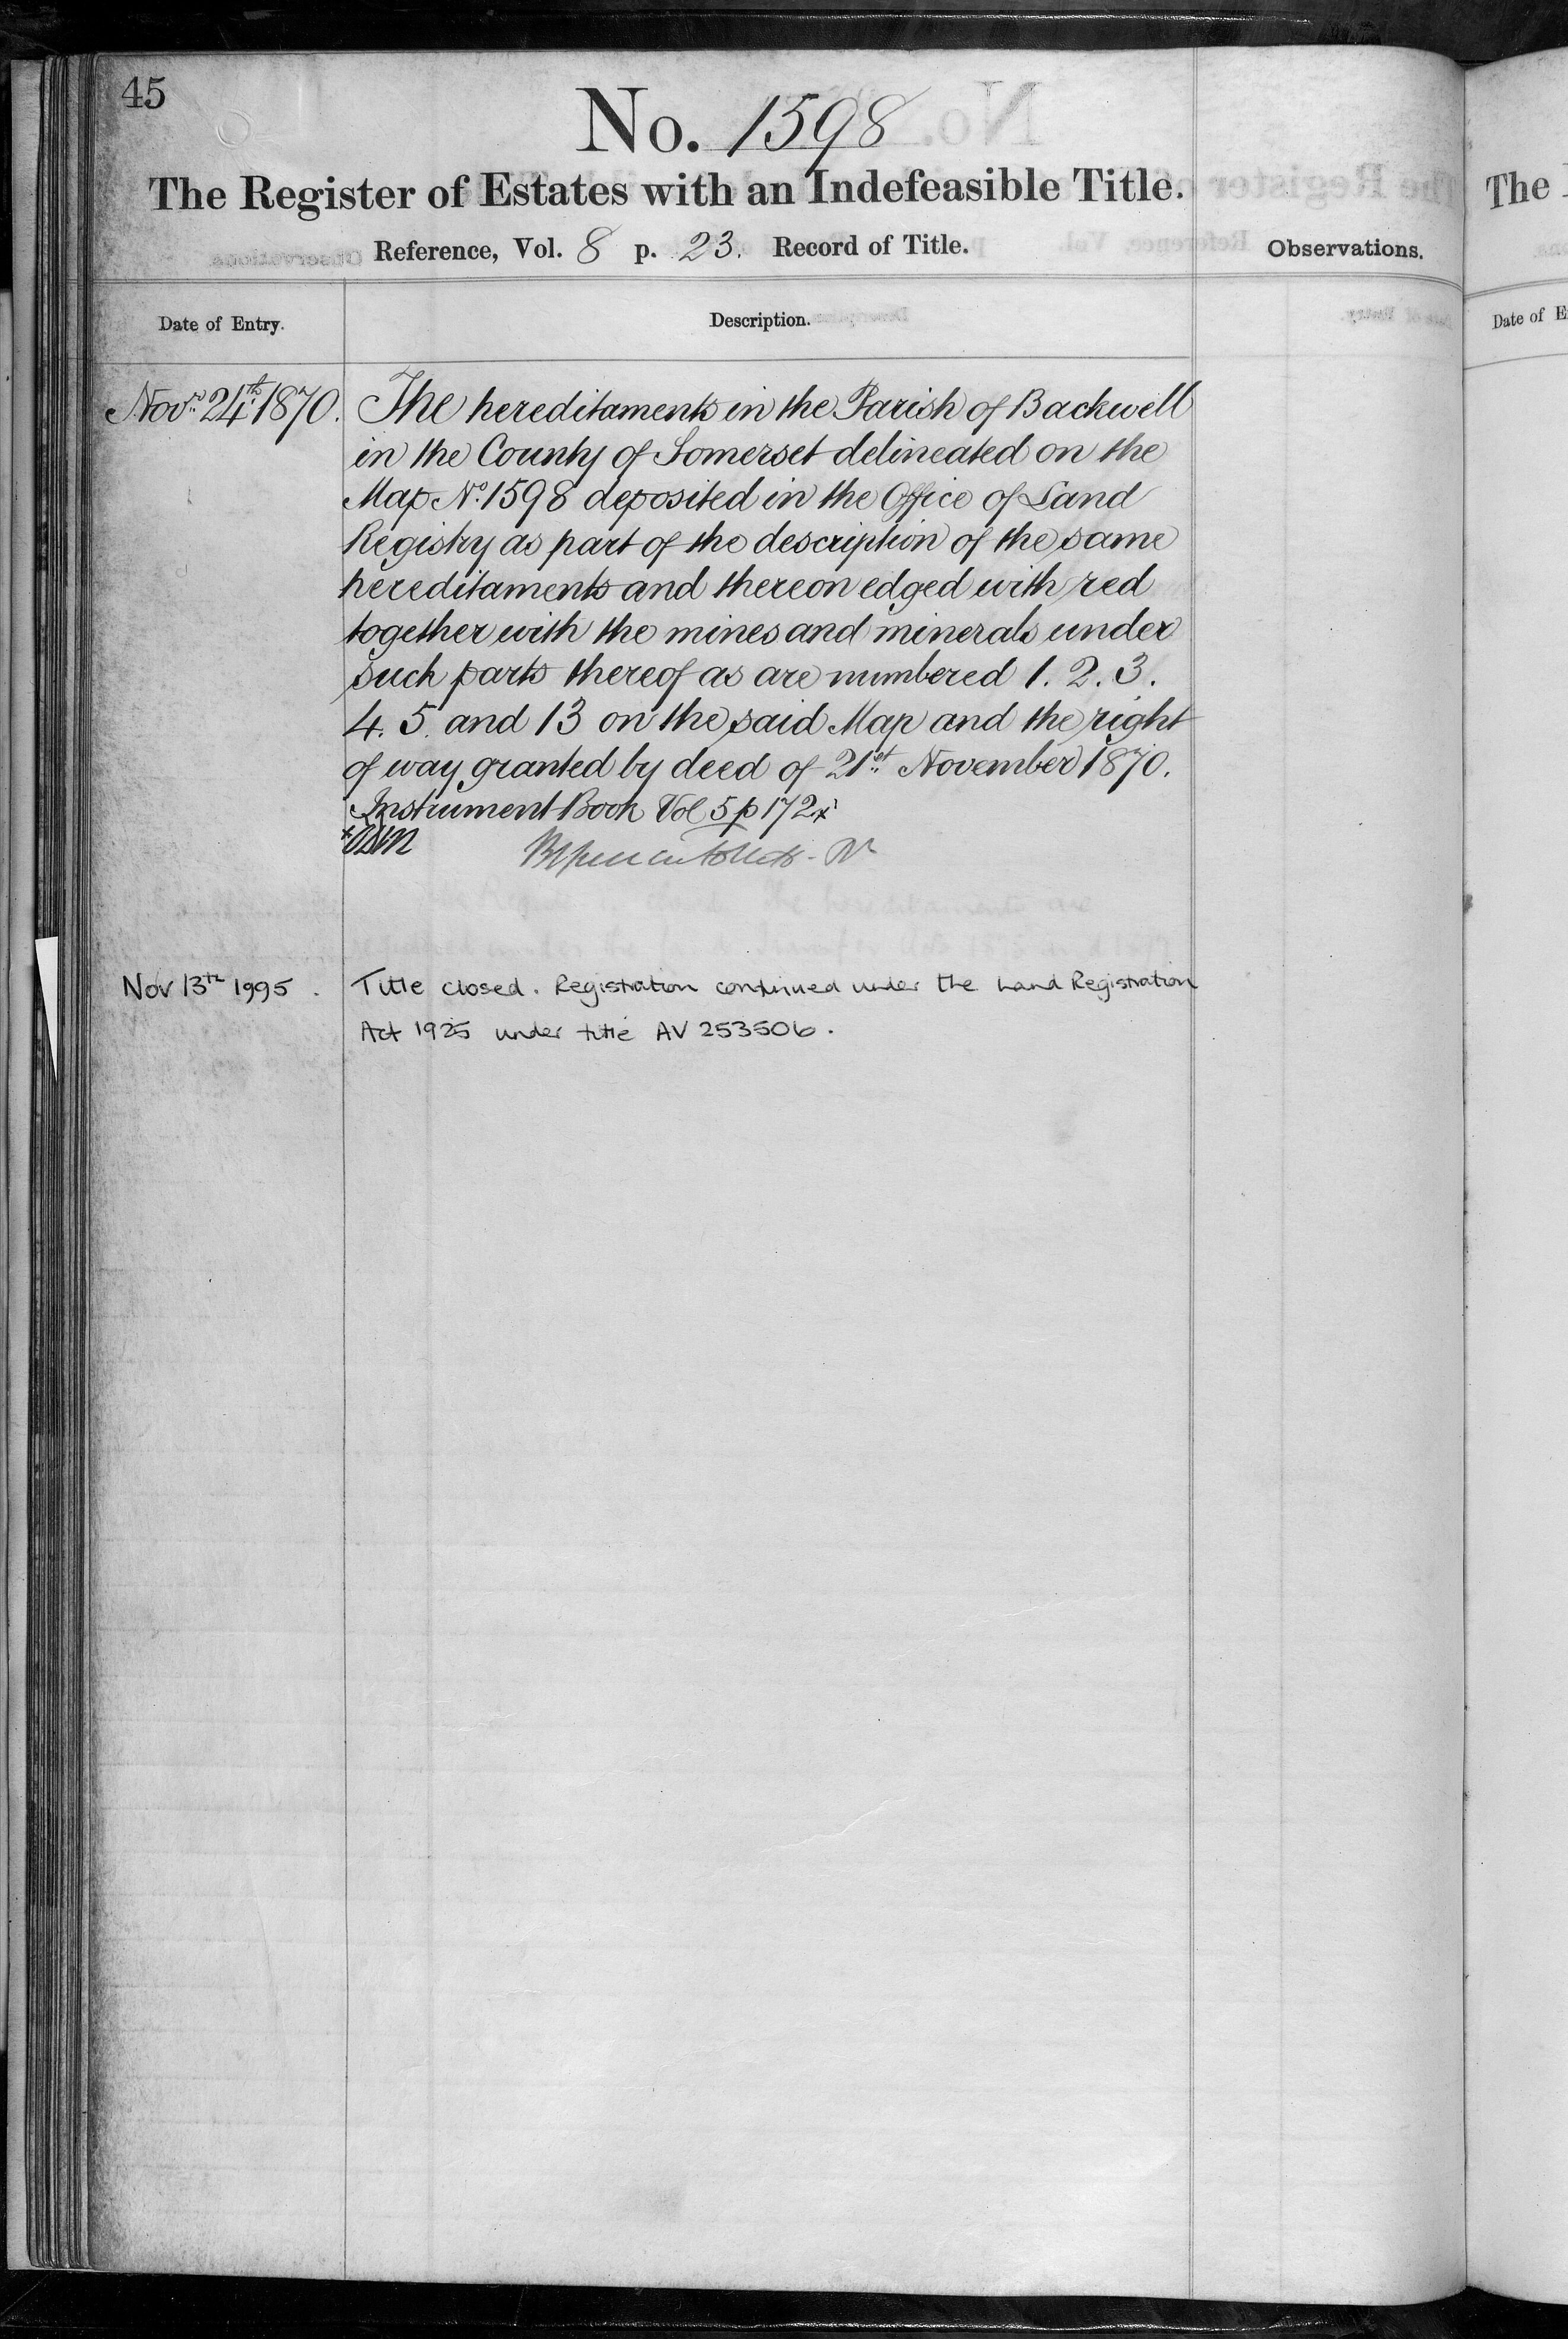 45
No. 1598
The Register of Estates with an Indefeasible Title.
Reference, Vol. 8 p. 23. Record of Title.
Observations.
Date of Entry.
Description.
Novr. 24th. 1870.
The hereditaments in the Parish of Backwell
in the County of Somerset delineated on the
Map No. 1598 deposited in the Office of Land
Registry as part of the description of the same
hereditaments and thereon edged with red
together with the mines and minerals under
such parts thereof as are numbered 1. 2. 3.
4. 5. and 13 on the said Map and the right
of way granted by deed of 21st. November 1870.
Instrument Book Vol 5 p 172 x
Nov 13th 1995.
Title closed. Registration continued under the Land Registration
Act 1925 under title AV 253506.
The
Date of E